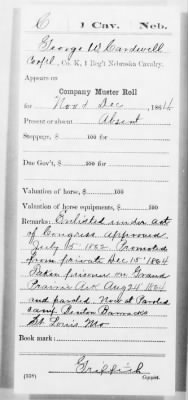 C | 1 Cav. | Neb.
George W. Cardwell
Corpl., Co. K, 1 Reg't Nebraska Cavalry.
Appears on
Company Muster Roll
for Nov & Dec, 1864
Present or absent Absent
Stoppage, $ 100 for
Due Gov't, $ 100 for
Valuation of horse, $ 100
Valuation of horse equipments, $ 100
Remarks: Enlisted under act
of Congress approved
July 15" 1862. Promoted
from private Dec 15" 1864
Taken prisoner on Grand
Prairie Ark Aug 24" 1864
and paroled. Now at Paroled
camp Benton Barracks
St. Louis Mo
Book mark:
Griffith
(358) Copyist.